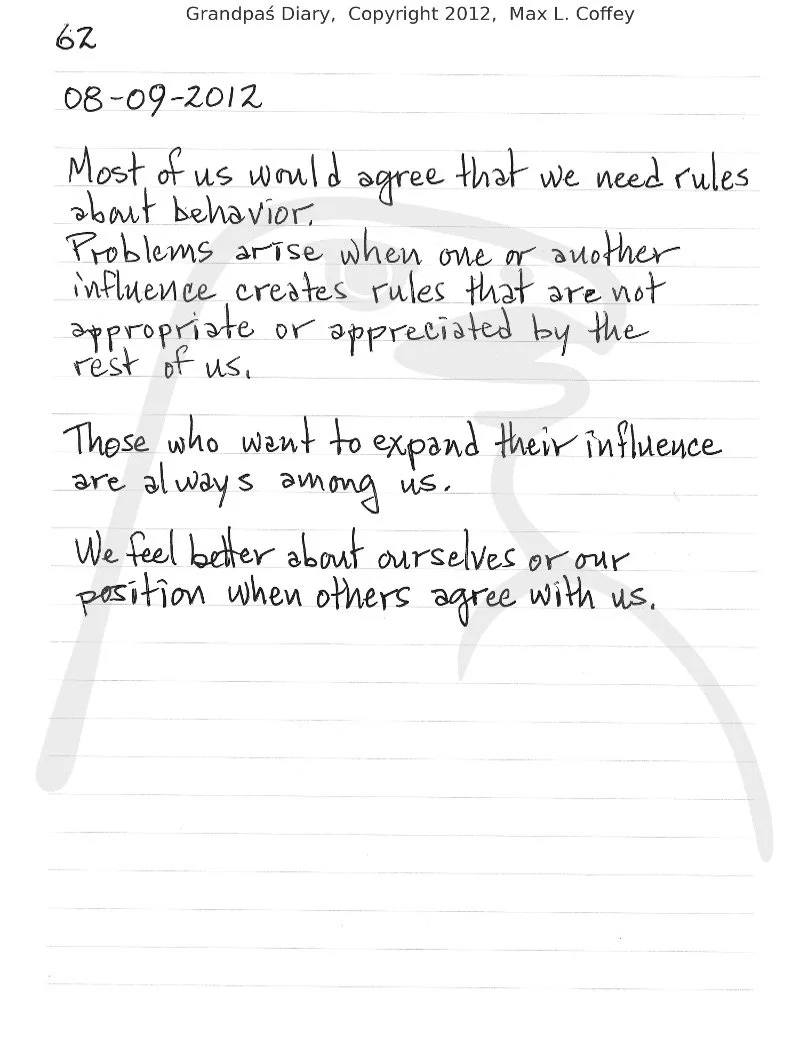 Grandpaś Diary, Copyright 2012, Max L. Coffey
62
08-09-2012
Most of us would agree that we need rules
about behavior.
Problems arise when one or another
influence creates rules that are not
appropriate or appreciated by the
rest of us.
Those who want to expand their influence
are always among us.
We feel better about ourselves or our
position when others agree with us.